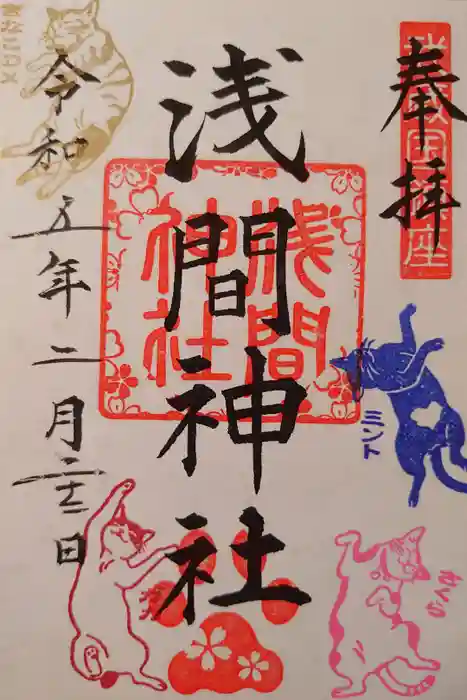 奉拝
浅間神社
浅間
神社
令和五年二月二十二日
ミント